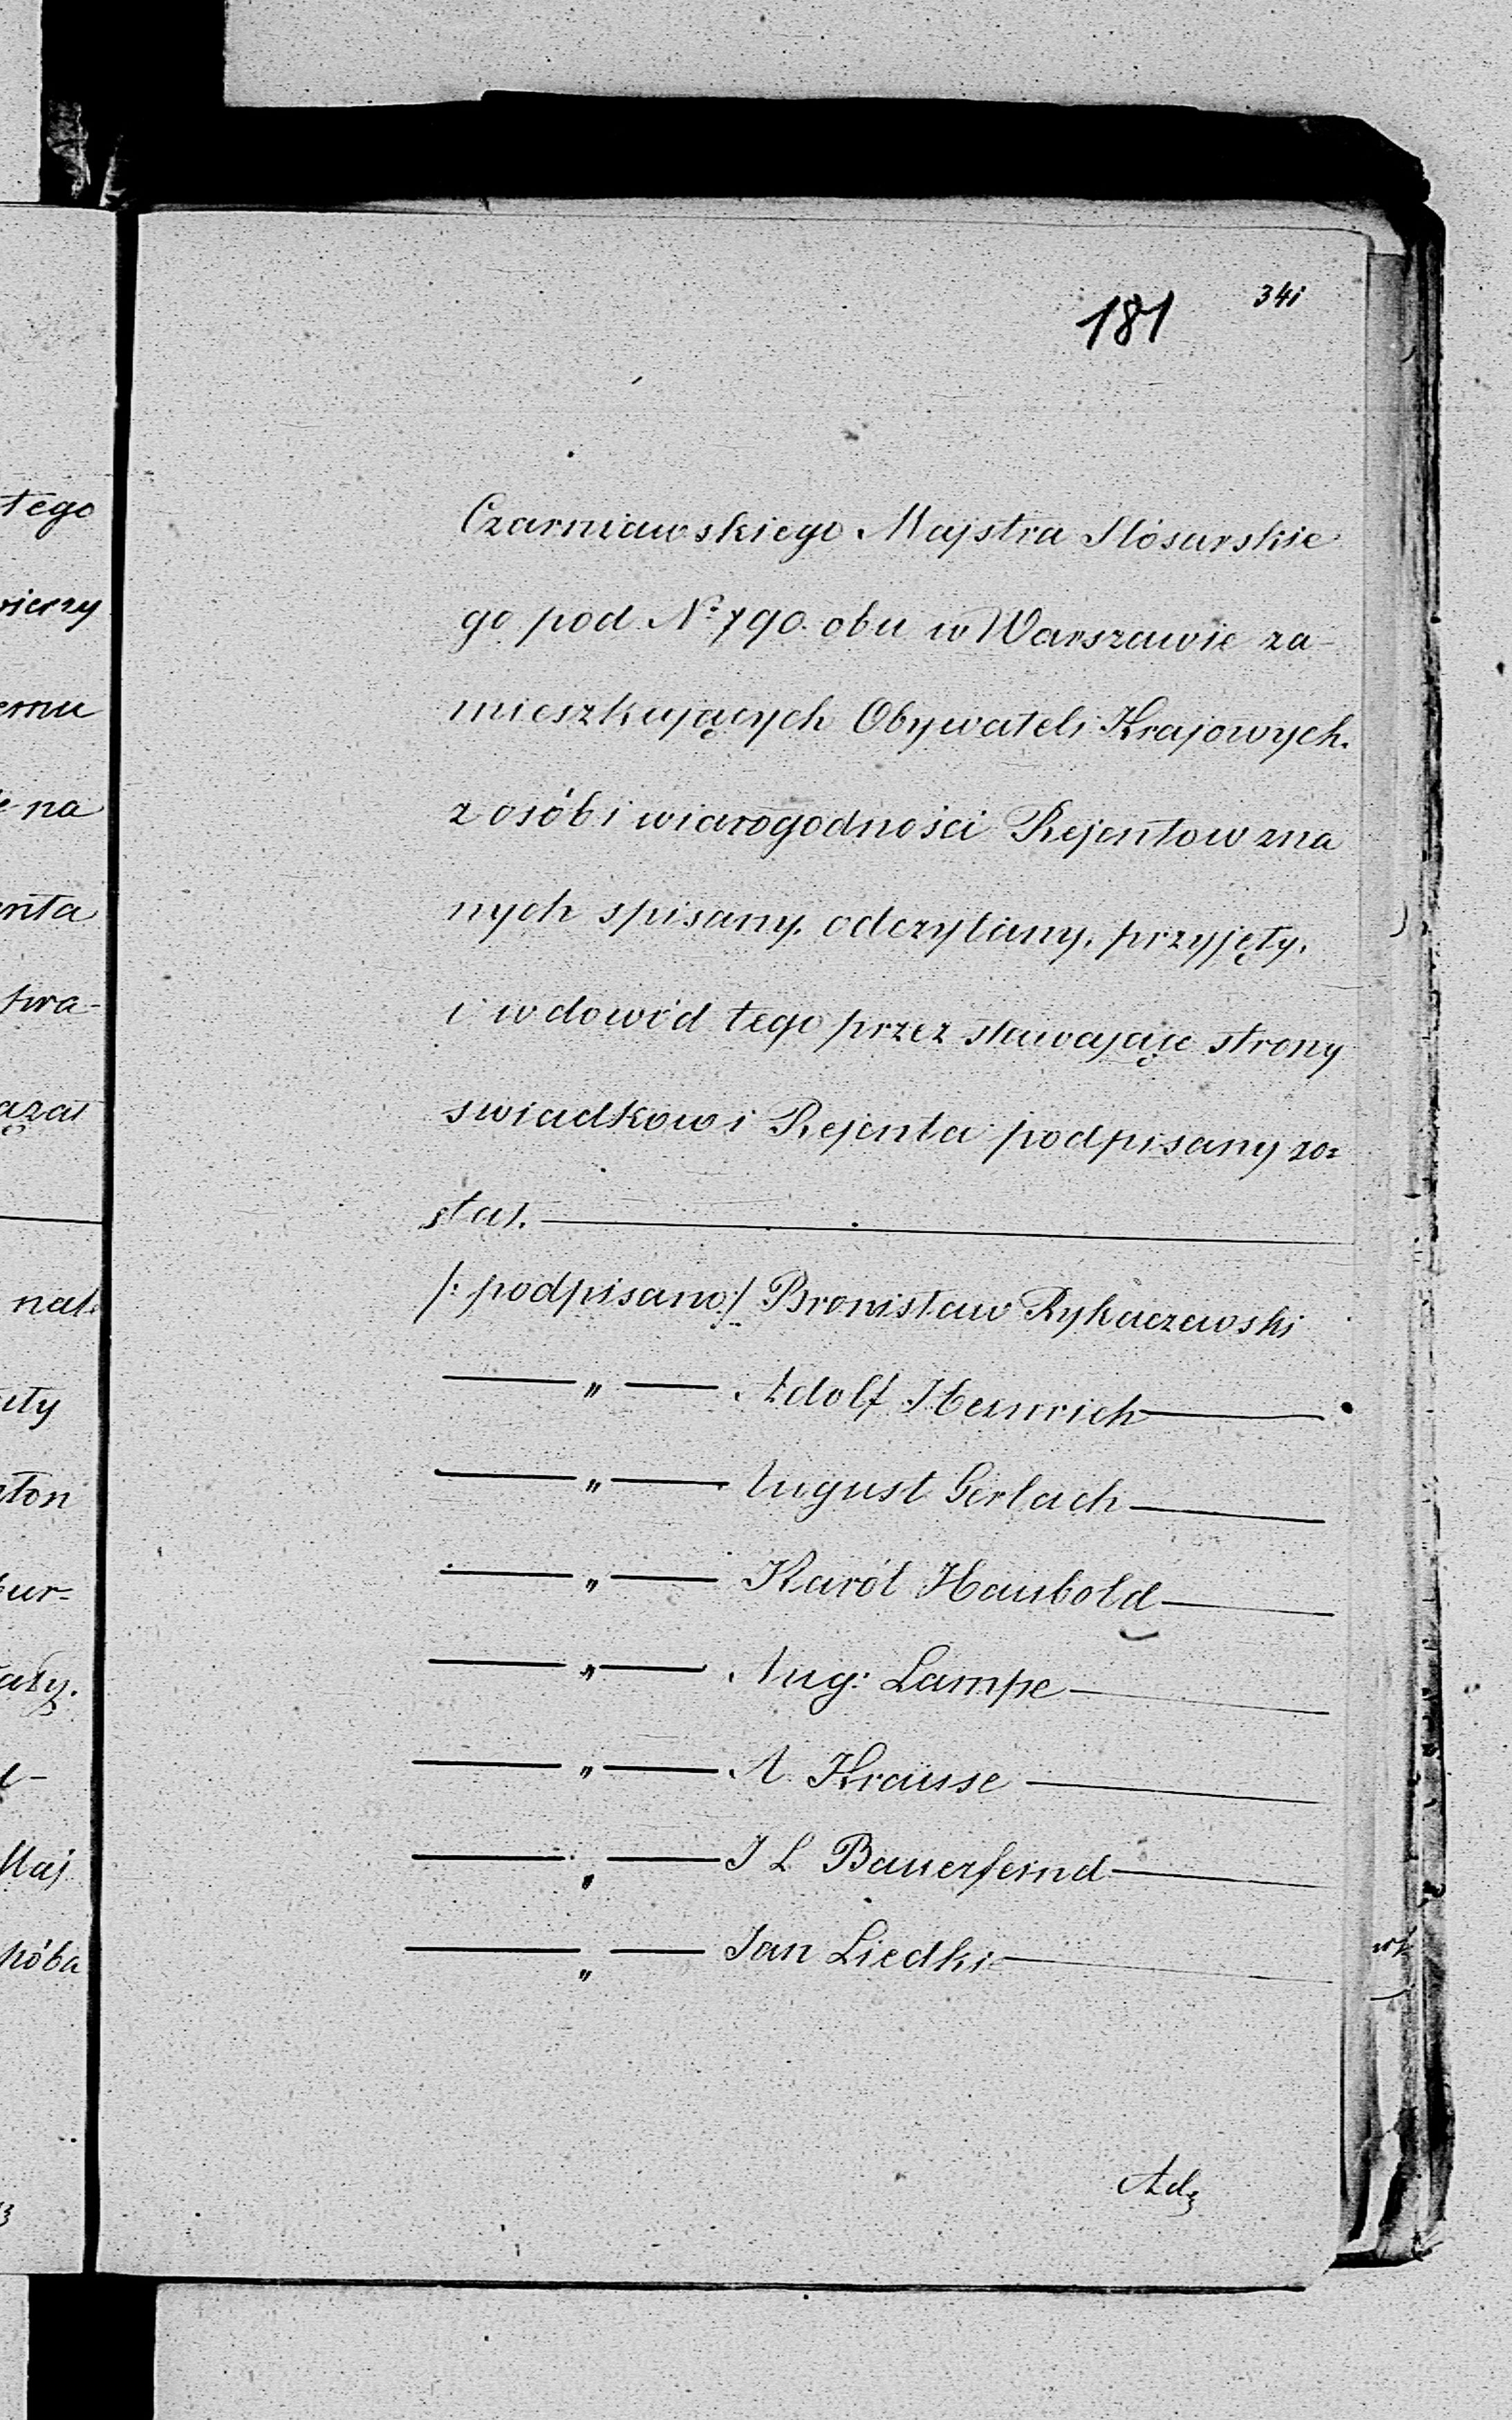 181 341
tego
wierzy
emu
na
enta
zał
nał
uły
Maj
kóba
Czarniawskiego Majstra Slósarskie
go pod Nº 790. obu w Warszawie za-
mieszkujących Obywateli Krajowych.
z osób i wiarogodności Rejentow zna
nych spisany. odczytany, przyjęty,
i w dowód tego przez stawające strony
swiadkow i Rejenta podpisany zo=
stał.
/: podpisano:/ Bronisław Rykaczewski
— " — Adolf Heinrich —
— " — August Gerlach —
— " — Karól Haubold —
— " — Aug: Lampe —
— " — A. Krausse —
— " — J L Bauerfeind —
— " — Jan Liedki —